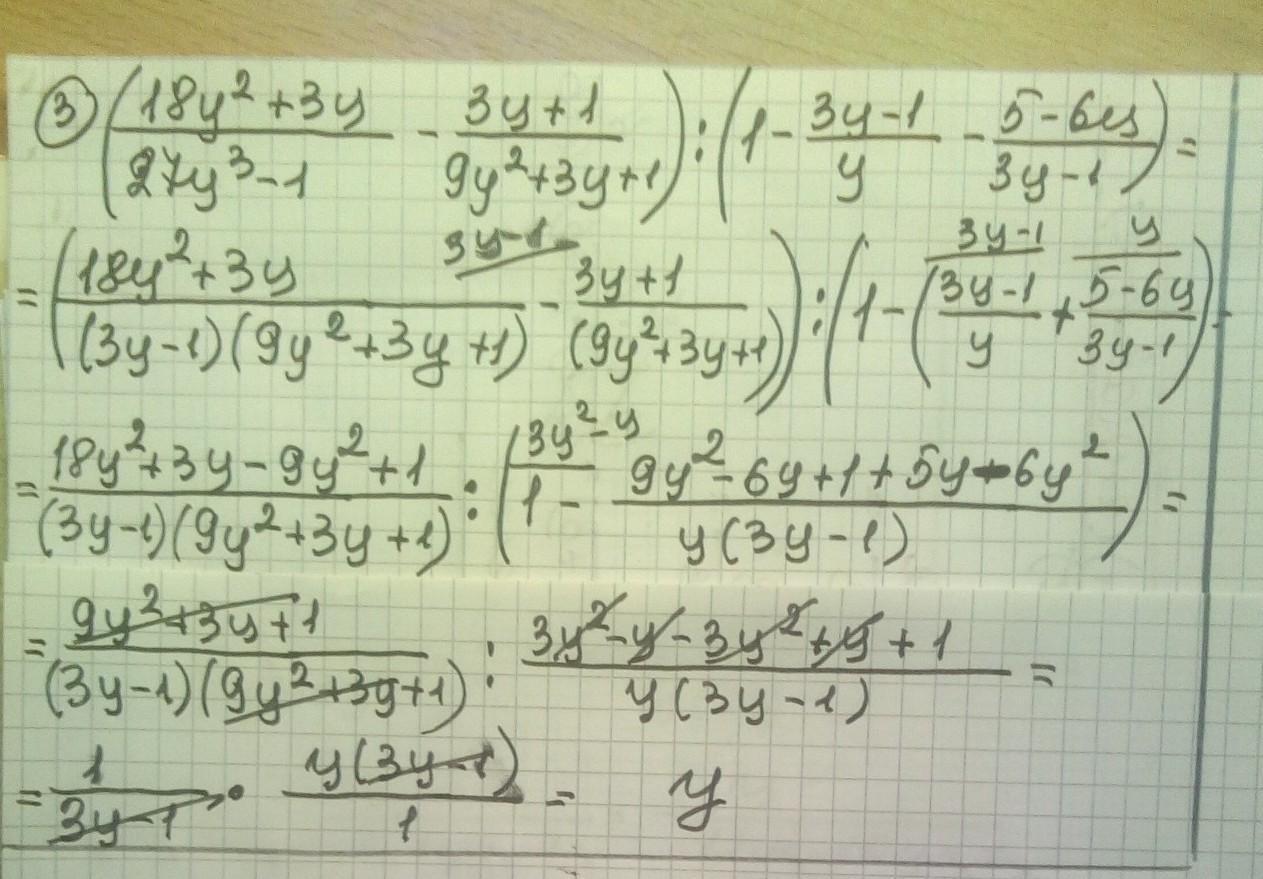 ③ ((18y²+3y)/(27y³-1) - (3y+1)/(9y²+3y+1)) : (1 - (3y-1)/y - (5-6y)/(3y-1)) =
= ((18y²+3y)/((3y-1)(9y²+3y+1)) - 3y-1 (3y+1)/((9y²+3y+1))) : (1 - (3y-1 (3y-1)/y + y (5-6y)/(3y-1))
= (18y²+3y-9y²+1)/((3y-1)(9y²+3y+1)) : (3y²-y 1 - (9y²-6y+1+5y-6y²)/(y(3y-1))) =
= (9y²+3y+1)/((3y-1)(9y²+3y+1)) : (3y²-y-3y²+y+1)/(y(3y-1)) =
= 1/(3y-1) · (y(3y-1))/1 = y